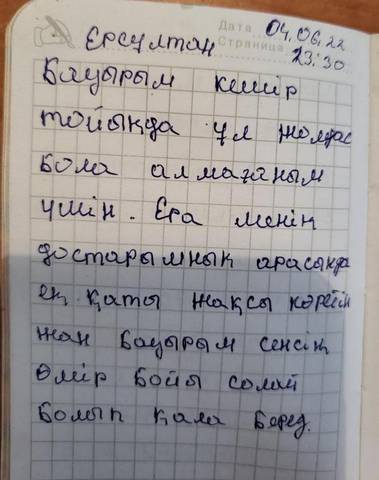 Дата 04.06.22
Страница 23:30
Ерсултан
Бауырым кешір
тойыңда ұл жолдас
бола алмағаным
үшін. Ера менің
достарымның арасында
ең қаты жақсы көретін
жан бауырым сенсің
Өмір бойы солай
болып қала беред.